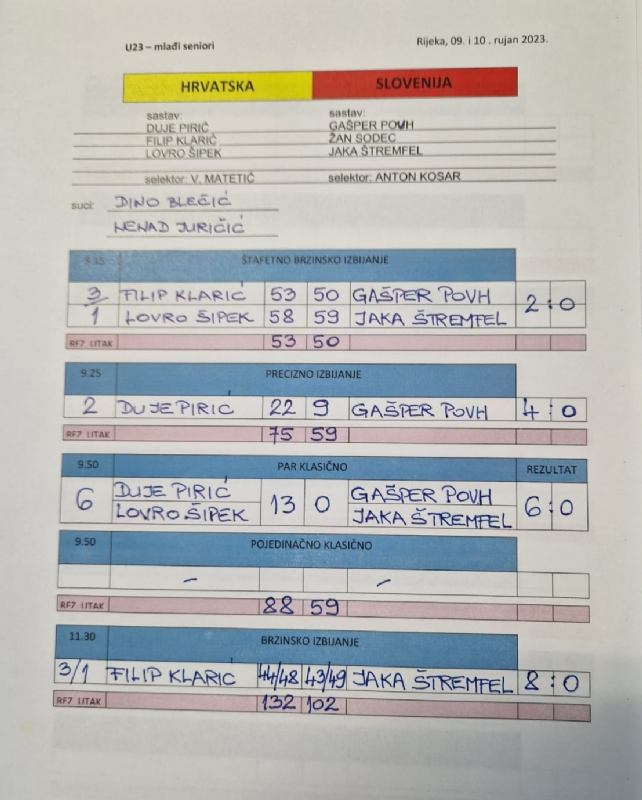 U23 – mlađi seniori
Rijeka, 09. i 10. rujan 2023.
HRVATSKA SLOVENIJA
sastav: sastav:
DUJE PIRIĆ GAŠPER POVH
FILIP KLARIĆ ŽAN SODEC
LOVRO ŠIPEK JAKA ŠTREMFEL
selektor: V. MATETIĆ selektor: ANTON KOSAR
suci: DINO BLEČIĆ
NENAD JURIČIĆ
ŠTAFETNO BRZINSKO IZBIJANJE
3 FILIP KLARIĆ 53 50 GAŠPER POVH 2:0
1 LOVRO ŠIPEK 58 59 JAKA ŠTREMFEL
RF7 LITAK 53 50
9.25 PRECIZNO IZBIJANJE
2 DUJE PIRIĆ 22 9 GAŠPER POVH 4:0
RF7 LITAK 75 59
9.50 PAR KLASIČNO REZULTAT
6 DUJE PIRIĆ 13 0 GAŠPER POVH 6:0
LOVRO ŠIPEK JAKA ŠTREMFEL
9.50 POJEDINAČNO KLASIČNO
– –
RF7 LITAK 88 59
11.30 BRZINSKO IZBIJANJE
3/1 FILIP KLARIĆ 44/48 43/49 JAKA ŠTREMFEL 8:0
RF7 LITAK 132 102